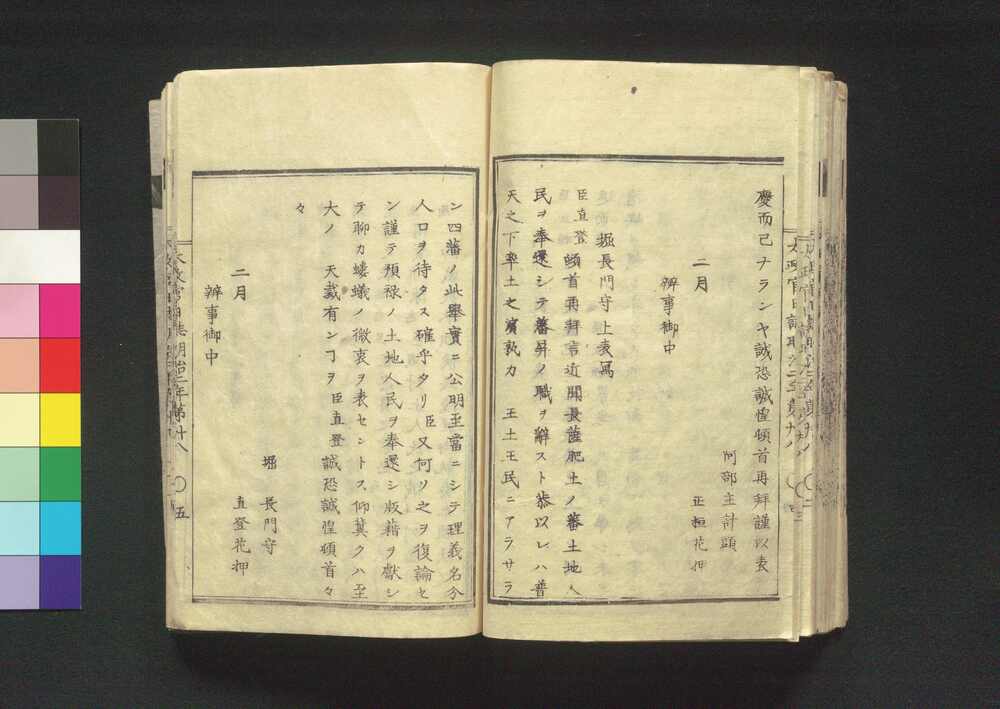 慶而已ナランヤ誠恐誠惶頓首再拜謹以表
阿部主計頭
正桓花押
二月
辨事御中
堀長門守上表寫
臣直登頓首再拜言近聞長薩肥土ノ藩土地人
民ヲ奉還シテ藩昇ノ職ヲ辭スト恭以レハ普
天之下率土之濱孰カ 王土王民ニアラサラ
ン四藩ノ此舉實ニ公明至當ニシテ理義名分
人口ヲ待タス確乎タリ臣又何ソ之ヲ復論セ
ン謹テ預祿ノ土地人民ヲ奉還シ版籍ヲ獻シ
テ聊カ螻蟻ノ微衷ヲ表セントス仰冀クハ至
大ノ 天裁有ンヿヲ 臣直登誠恐誠惶頓首々
々
二月
堀 長門守
直登花押
辨事御中
五